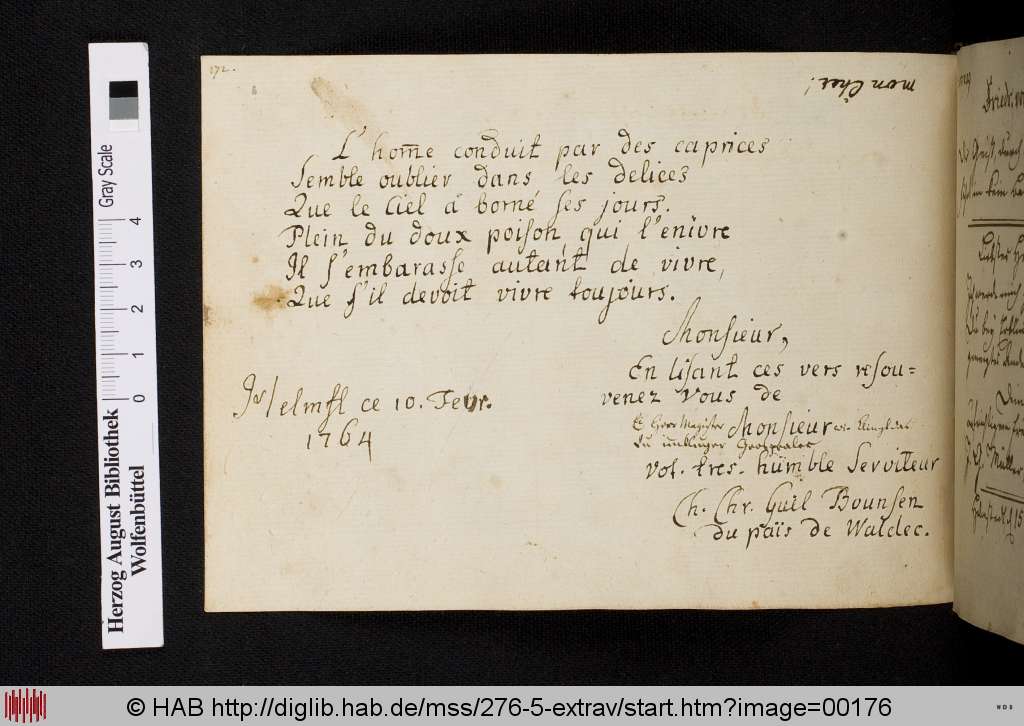 172.
mon Cher!
L' hom̅e conduit par des caprices
Semble oublier dans les delices
Que le Ciel á borné ses jours.
Plein du doux poison, qui l'enivre
Il s'embarasse autant de vivre,
Que s'il devoit vivre toujours.
Monsieur,
En lisant ces vers resou=
venez vous de
Monsieur
Magister
du
vot. tres-humble Serviteur
Ch. Chr. Guil Bounsen
du païs de Waldec.
ce 10. Fevr.
1764
Friedr.
Müller
Herzog August Bibliothek
Wolfenbüttel
Gray Scale
0 1 2 3 4
© HAB http://diglib.hab.de/mss/276-5-extrav/start.htm?image=00176
WDB